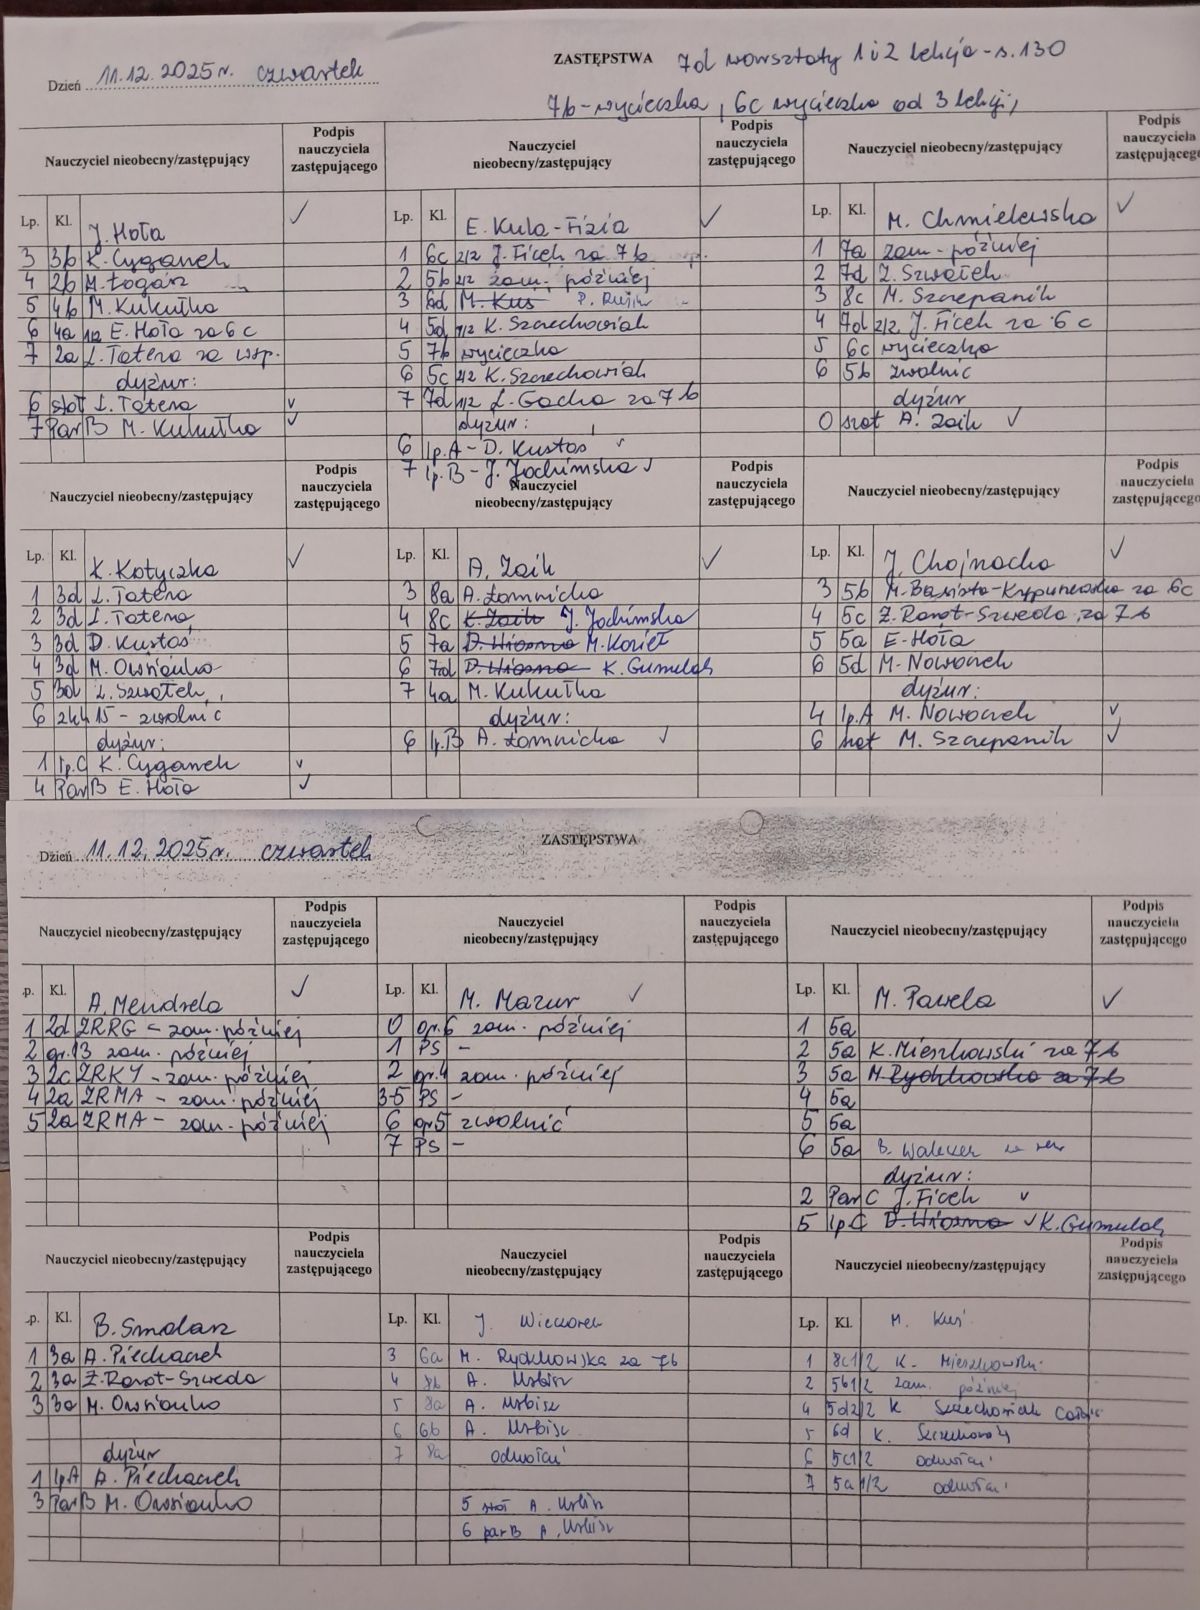 ZASTĘPSTWA 7d warsztaty 1 i 2 lekcja - s.130
Dzień 11.12.2025r. czwartek
7b - wycieczka, 6c wycieczka od 3 lekcji,
Nauczyciel nieobecny/zastępujący
Podpis nauczyciela zastępującego
Lp. Kl. J. Hoła ✓
3 3b K. Cyganek
4 2b M. Łogasz
5 4b M. Kukułka
6 4a 1/2 E. Hoła za 6c
7 2a L. Tatera za wsp.
dyżur:
6 szat L. Tatera ✓
7 Par B M. Kukułka ✓
Nauczyciel nieobecny/zastępujący
Podpis nauczyciela zastępującego
Lp. Kl. E. Kula-Fizia ✓
1 6c 2/2 J. Ficek za 7b
2 5b 2/2 zam. później
3 6d M. Kuś P.
4 5d 1/2 K. Szczechowiak
5 7b wycieczka
6 5c 2/2 K. Szczechowiak
7 7d 1/2 Ł. Gacka za 7b
dyżur:
6 łp.A - D. Kustos ✓
7 łp.B - J. Jochimska ✓
Nauczyciel nieobecny/zastępujący
Podpis nauczyciela zastępującego
Lp. Kl. M. Chmielewska ✓
1 7a zam. później
2 7d Z. Szwałek
3 8c M. Szczepanik
4 7d 2/2 J. Ficek za 6c
5 6c wycieczka
6 5b zwolnić
dyżur
0 szat A. Zaik ✓
Nauczyciel nieobecny/zastępujący
Podpis nauczyciela zastępującego
Lp. Kl. K. Kotyczka ✓
1 3d L. Tatera
2 3d L. Tatera
3 3d D. Kustos
4 3d M. Owsianko
5 3d Z. Szwałek
6 zkk 15 - zwolnić
dyżur:
1 łp.C K. Cyganek ✓
4 Par B E. Hoła ✓
Nauczyciel nieobecny/zastępujący
Podpis nauczyciela zastępującego
Lp. Kl. A. Zaik ✓
3 8a A. Łomnicka
4 8c K. Zaik J. Jochimska
5 7a D. Wiosna M. Kozieł
6 7d D. Wiosna K. Gumulak
7 4a M. Kukułka
dyżur:
6 łp.B A. Łomnicka ✓
Nauczyciel nieobecny/zastępujący
Podpis nauczyciela zastępującego
Lp. Kl. J. Chojnacka ✓
3 5b M. Basista- za 6c
4 5c Ż. Rorot-Szweda za 7b
5 5a E. Hoła
6 5d M. Nowaczek
dyżur:
4 łp.A M. Nowaczek ✓
6 szat M. Szczepanik ✓
ZASTĘPSTWA
Dzień 11.12.2025r. czwartek
Nauczyciel nieobecny/zastępujący
Podpis nauczyciela zastępującego
p. Kl. A. Mendrela ✓
1 2d ZRRG - zam. później
2 gr.13 zam. później
3 2c ZRKY - zam. później
4 2a ZRMA - zam. później
5 2a ZRMA - zam. później
Nauczyciel nieobecny/zastępujący
Podpis nauczyciela zastępującego
Lp. Kl. M. Mazur ✓
0 gr.6 zam. później
1 PS -
2 gr.4 zam. później
3-5 PS -
6 gr5 zwolnić
7 PS -
Nauczyciel nieobecny/zastępujący
Podpis nauczyciela zastępującego
Lp. Kl. M. Pawela ✓
1 5a
2 5a K. Mieszkowski za 7b
3 5a M. Rychkowska za 7b
4 5a
5 5a
6 5a B.
dyżur:
2 Par C J. Ficek ✓
5 łp.C D. Wiosna ✓ K. Gumulak
Nauczyciel nieobecny/zastępujący
Podpis nauczyciela zastępującego
.p. Kl. B. Smolarz
1 3a A. Piechaczek
2 3a Ż. Rorot-Szweda
3 3a M. Owsianko
dyżur
1 łp.A A. Piechaczek
3 Par B M. Owsianko
Nauczyciel nieobecny/zastępujący
Podpis nauczyciela zastępującego
Lp. Kl. J. Wieczorek
3 6a M. Rychkowska za 7b
4 8b A. Urbisz
5 8a A. Urbisz
6 6b A. Urbisz
7 8a odwołać
5 szat A. Urbisz
6 par B A. Urbisz
Nauczyciel nieobecny/zastępujący
Podpis nauczyciela zastępującego
Lp. Kl. M. Kuś
1 8c1/2 K. Mieszkowski
2 5b1/2 zam. później
4 5d2/2 K Szczechowiak
5 6d K. Szczechowiak
6 5c1/2 odwołać
7 5a 1/2 odwołać